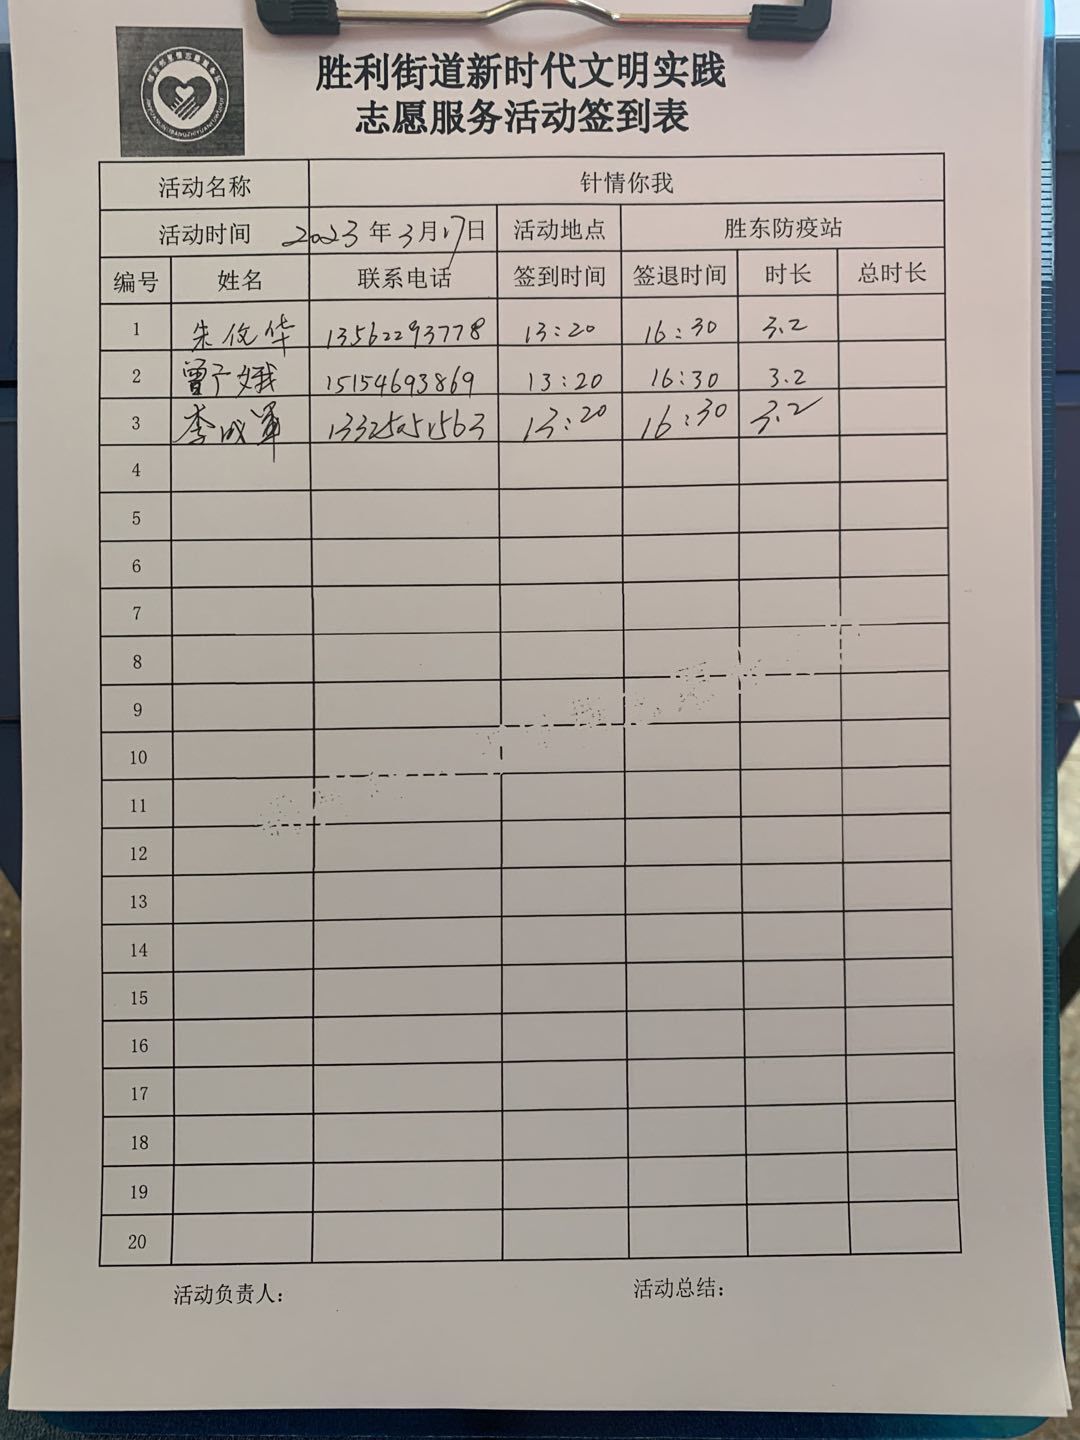 胜利街道新时代文明实践
志愿服务活动签到表
活动名称 针情你我
活动时间 2023年3月17日 活动地点 胜东防疫站
编号 姓名 联系电话 签到时间 签退时间 时长 总时长
1 朱俊华 13562293778 13:20 16:30 3.2
2 曾广娥 15154693869 13:20 16:30 3.2
3 李成军 13325251563 13:20 16:30 3.2
4
5
6
7
8
9
10
11
12
13
14
15
16
17
18
19
20
活动负责人： 活动总结：